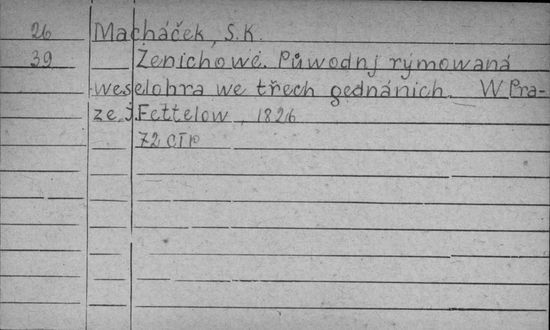 26 Macháček, S.K.
39 Ženichowé. Půwodnj rýmowaná
weselohra we třech gednánich. W Pra-
ze, J. Fettelow, 1826
72 CTP